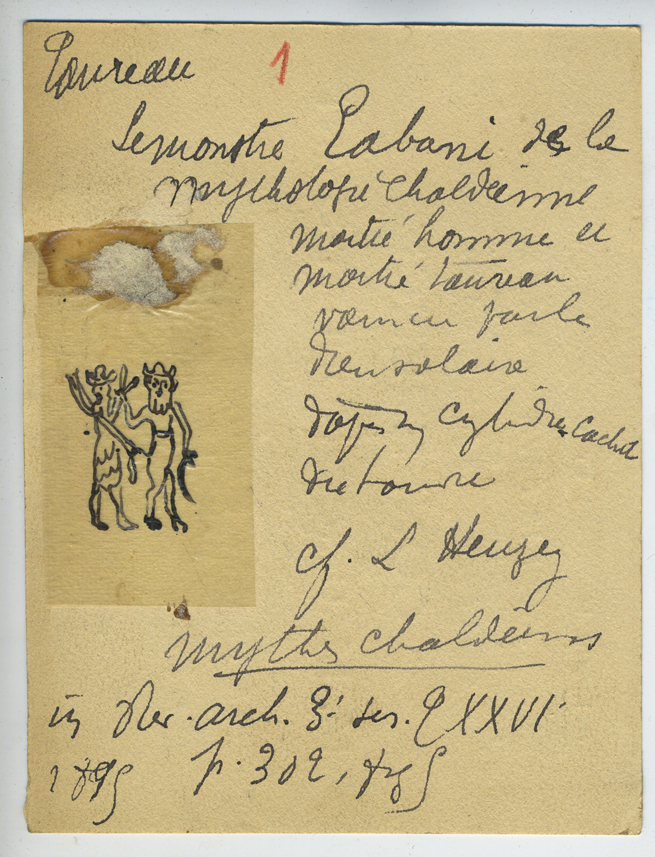 Taureau 1
Le monstre Eabani de la
mythologie chaldéenne
moitié homme et
moitié taureau
vaincu par le
dieu solaire
d'après un cylindre cachet
du Louvre
cf. L Heuzey
mythes chaldéens
in Rev. arch. 3e ser. T XXVI
1895 p. 302, fig 5